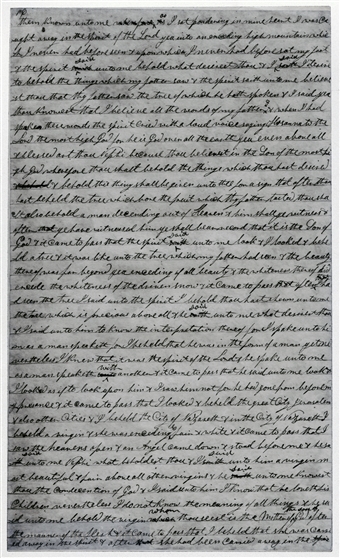 them known unto me wherefore as I sat pondering in mine heart I was ca
ught away in the spirit of the Lord yea into an exceding high mountain which
I never had before seen & upon which I never had before sat my foot
& the spirit saith unto me behold what desirest thou & I said I desire
to behold the things which my father saw & the spirit saith unto me believe
st thou that thy father saw the tree of which he hath spoken & I said yea
thou knowest that I believe all the words of my father & when I had
spoken these words the spirit cried with a loud voice saying Hosanna to the
Lord the most high God for he is God over all the earth yea even above all
& blessed art thou Nephi because thou believest in the Son of the most hi
gh God wherefore thou shalt behold the things which thou hast desired
& behold this thing shall be given unto thee for a sign that after thou
hast beheld the tree which bore the fruit which thy father tasted thou sha
lt also behold a man decending out of Heaven & him shall ye witness &
after ye have witnessed him ye shall bear record that it is the Son of
God & it came to pass that the spirit said unto me look & I looked & behe
ld a tree & it was like unto the tree which my father had seen & the beauty
thereof was far beyond yea exceding of all beauty & the whiteness thereof did
excede the whiteness of the driven snow & it came to pass that after I had
seen the tree I said unto the spirit I behold thou hast shewn unto me
the tree which is precious above all & he saith unto me what desirest thou
& I said unto him to know the interpretation thereof for I spake unto hi
m as a man speaketh for I beheld that he was in the form of a man yet ne
vertheless I knew that it was the spirit of the Lord & he spake unto me
as a man speaketh with another & it came to pass that he said unto me look &
I looked as if to look upon him & I saw him not for he had gone from before m
y presence & it came to pass that I looked & beheld the great City Jerusalem
& also other Cities & I beheld the City of Nazareth & in the City of Nazareth I
beheld a virgin & she was exceding fair & white & it came to pass that I
saw the heavens open & an Angel came down & stood before me & he sa
id unto me Nephi what beholdest thou & I said unto him a virgin m
ost beautiful & fair above all other virgins & he said unto me knowest
thou the condecention of God & I said unto him I know that he loveth his
Children nevertheless I do not know the meaning of all things & he sa
id unto me behold the virgin whom thou seest is the Mother of God after
the manner of the flesh & it came to pass that I beheld that she was carri
ed away in the spirit & after she had been carried away in the spi